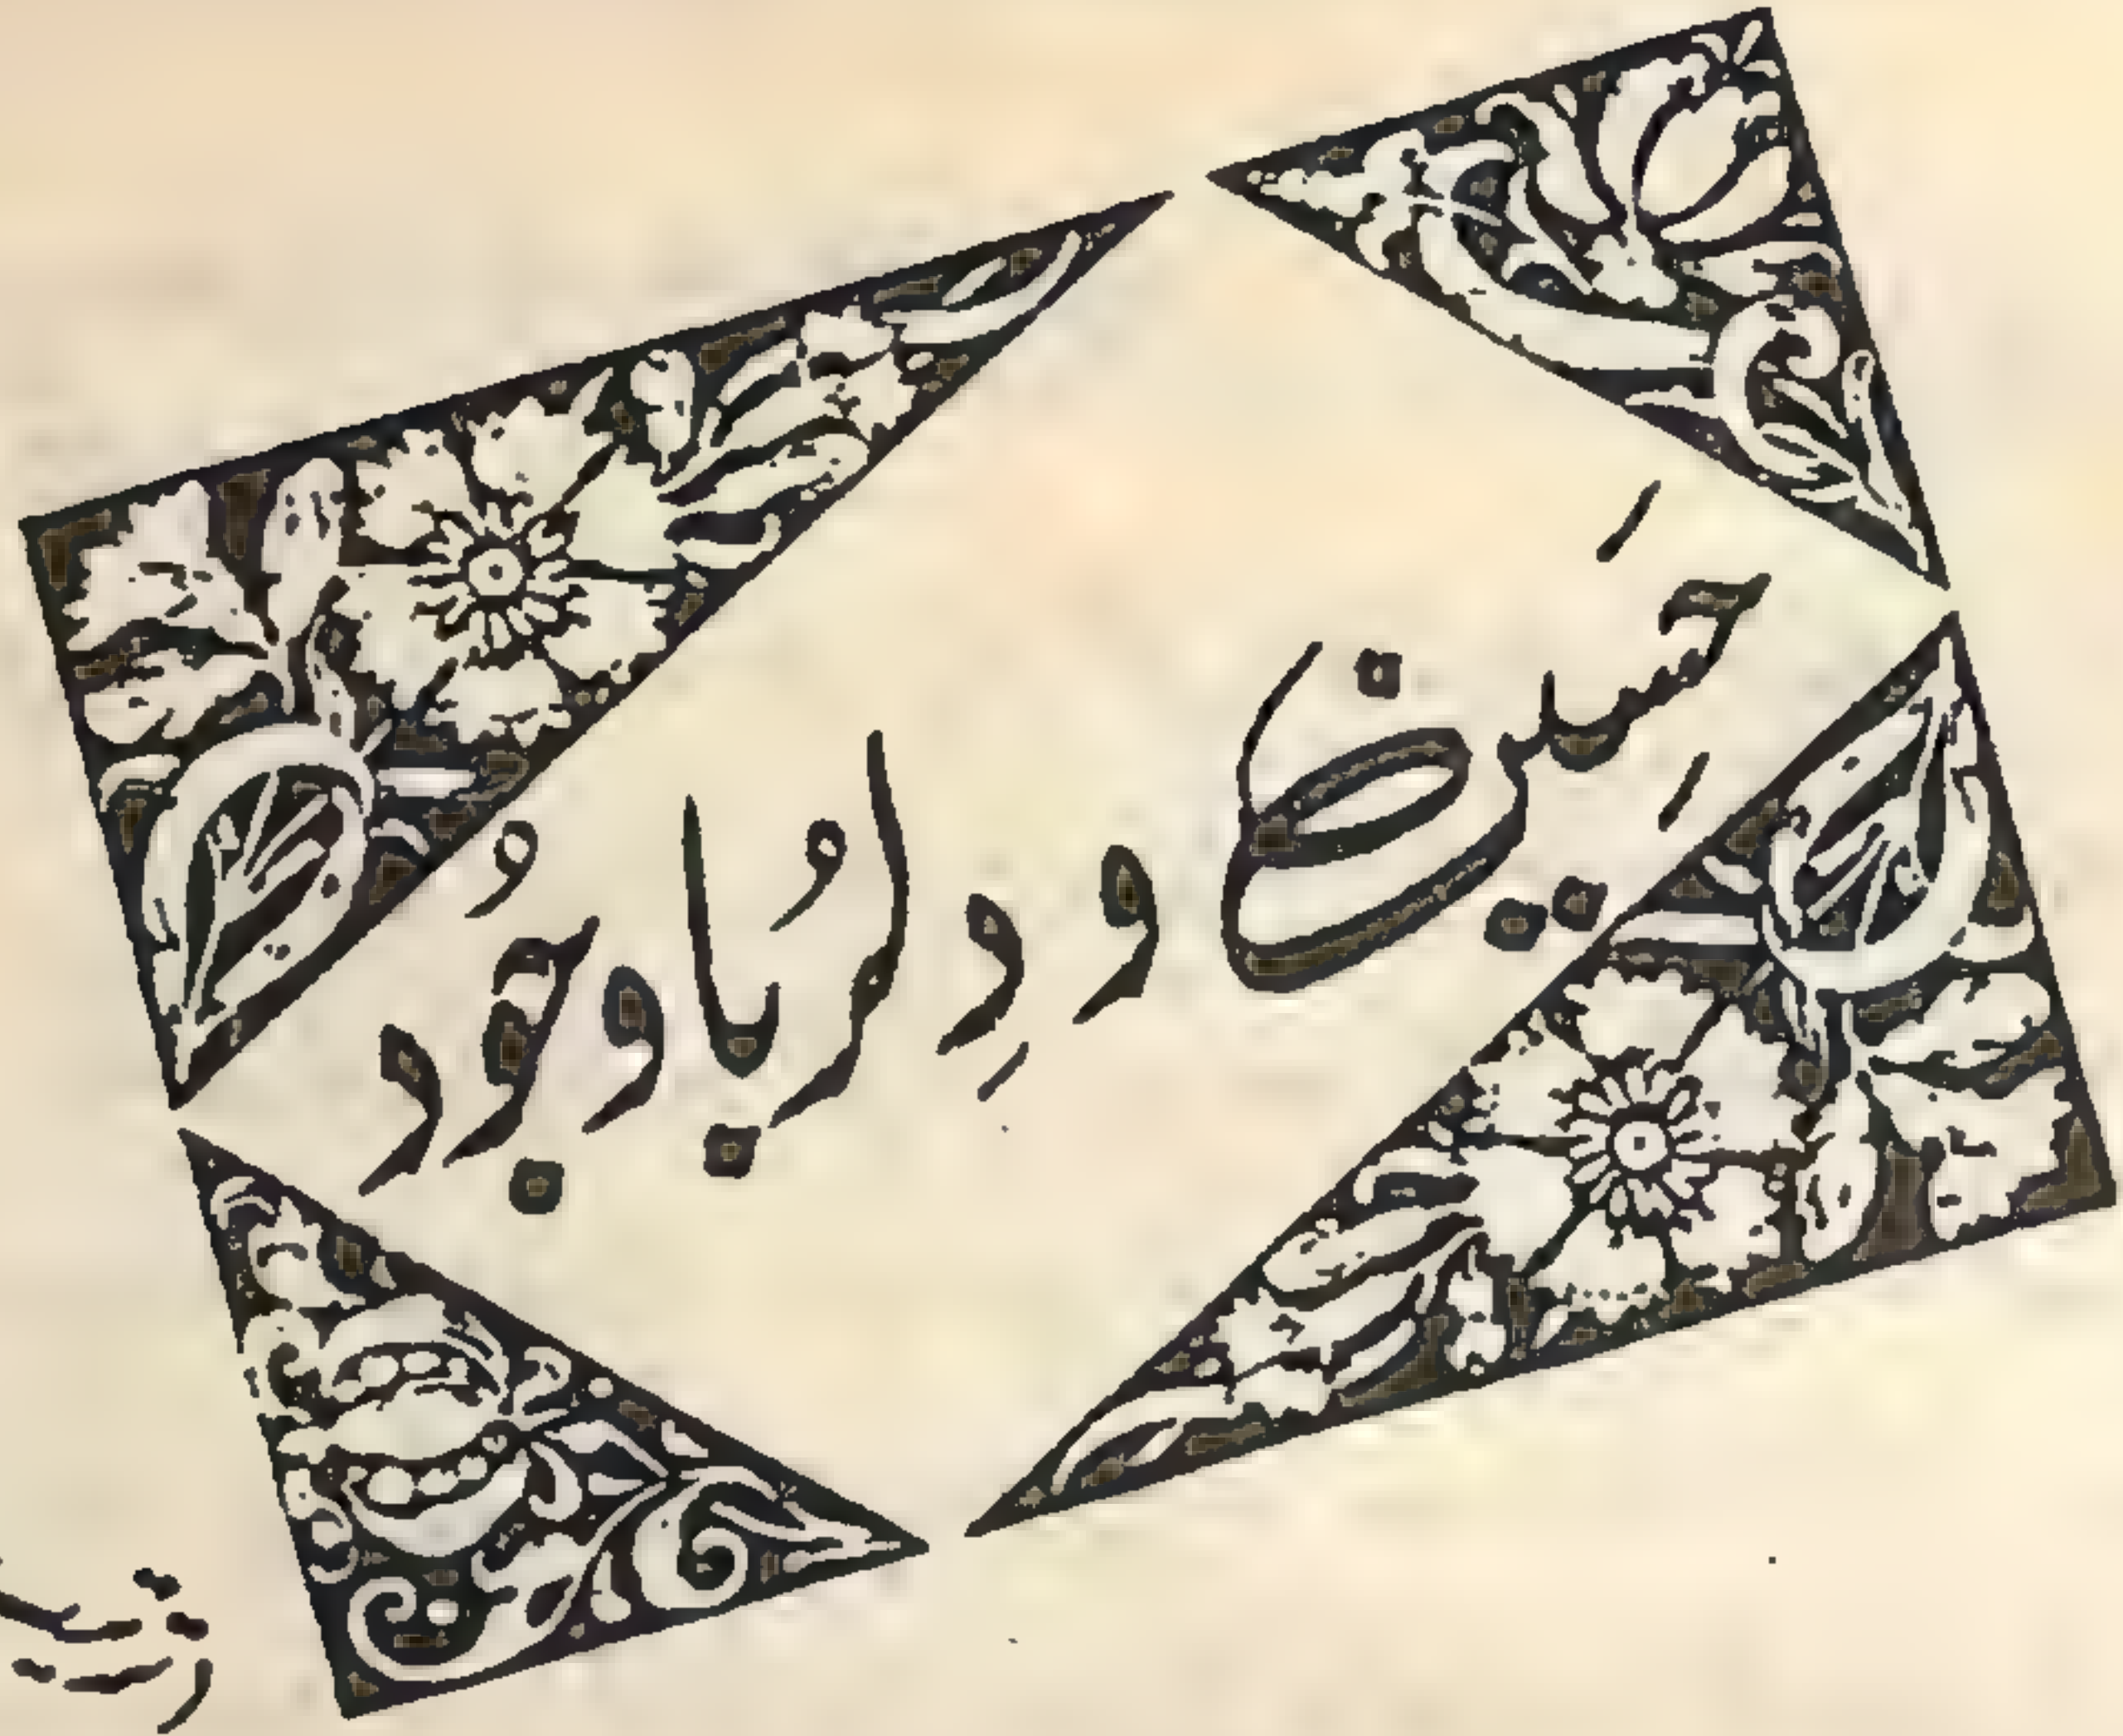 حَسِین و دِلرُبا وجُود